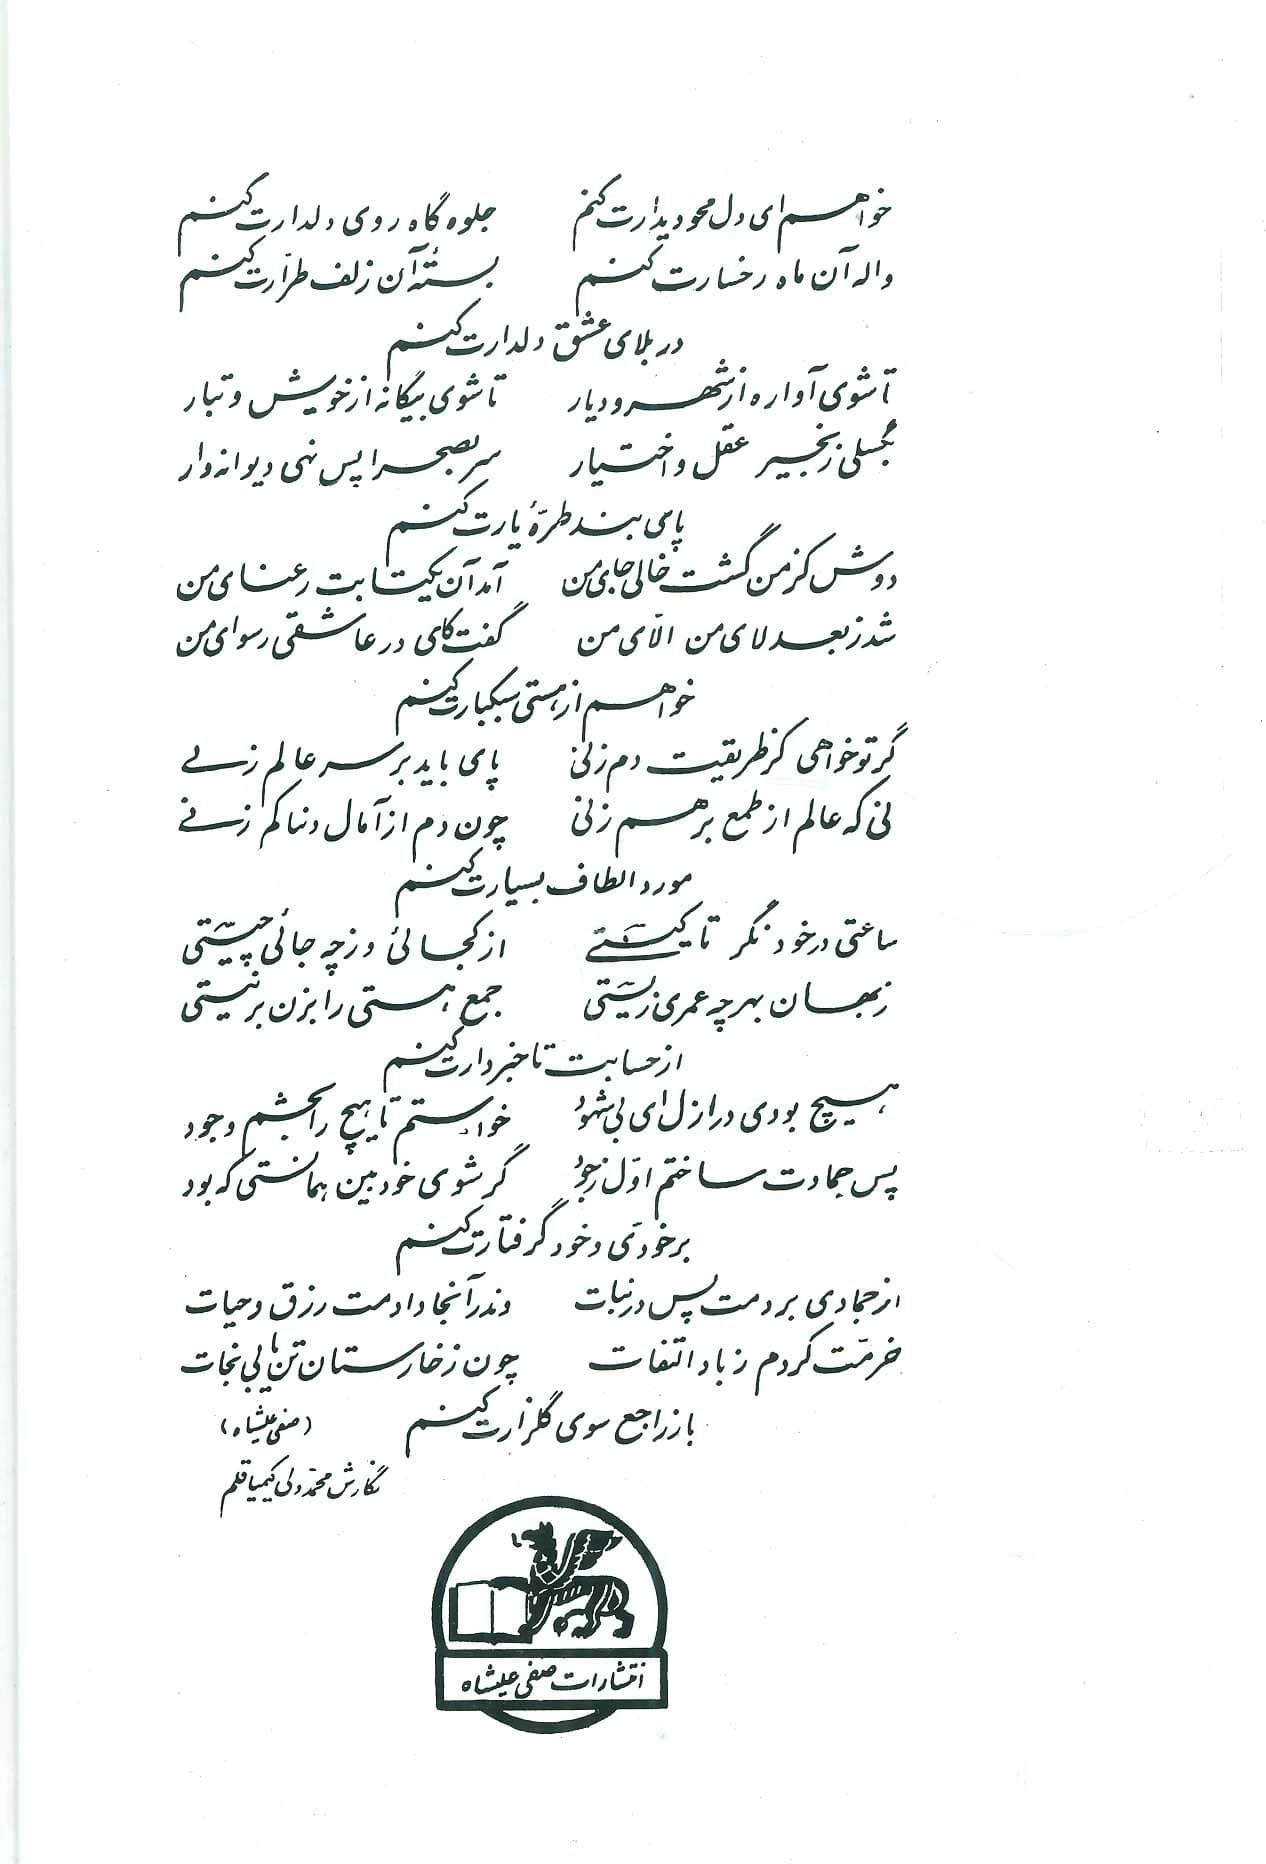 خواهم ای دل محو دیدارت کنم جلوه گاه روی دلدارت کنم
واله آن ماه رخسارت کنم بستهٔ آن زلف طرّارت کنم
در بلای عشق دلدارت کنم
تا شوی آواره از شهر و دیار تا شوی بیگانه از خویش و تبار
بگسلی زنجیر عقل و اختیار سر بصحرا پس نهی دیوانه وار
پای بند طرّهٔ یارت کنم
دوش کز من گشت خالی جای من آمد آن یکتا بت رعنای من
شد ز بعد لای من الّای من گفت کای در عاشقی رسوای من
خواهم از هستی سبکبارت کنم
گر تو خواهی کز طریقت دم زنی پای باید بر سر عالم زنی
نی که عالم از طمع بر هم زنی چون دم از آمال دنیا کم زنی
مورد الطاف بسیارت کنم
ساعتی در خود نگر تا کیستی از کجائی وز چه جائی چیستی
زین جهان بهر چه عمری زیستی جمع هستی را بزن بر نیستی
از حسابت تا خبردارت کنم
هیچ بودی در ازل ای بی شهود خواستم تا هیچ را بخشم وجود
پس جمادت ساختم اوّل ز جود گر شوی خودبین همانستی که بود
بر خودی و خود گرفتارت کنم
از جمادی بردمت پس در نبات وندر آنجا دادمت رزق و حیات
خرمّت کردم ز باد التفات چون ز خارستان تن یابی نجات
باز راجع سوی گلزارت کنم (صفی علیشاه)
نگارش محمّدولی کیمیاقلم
انتشارات صفی علیشاه